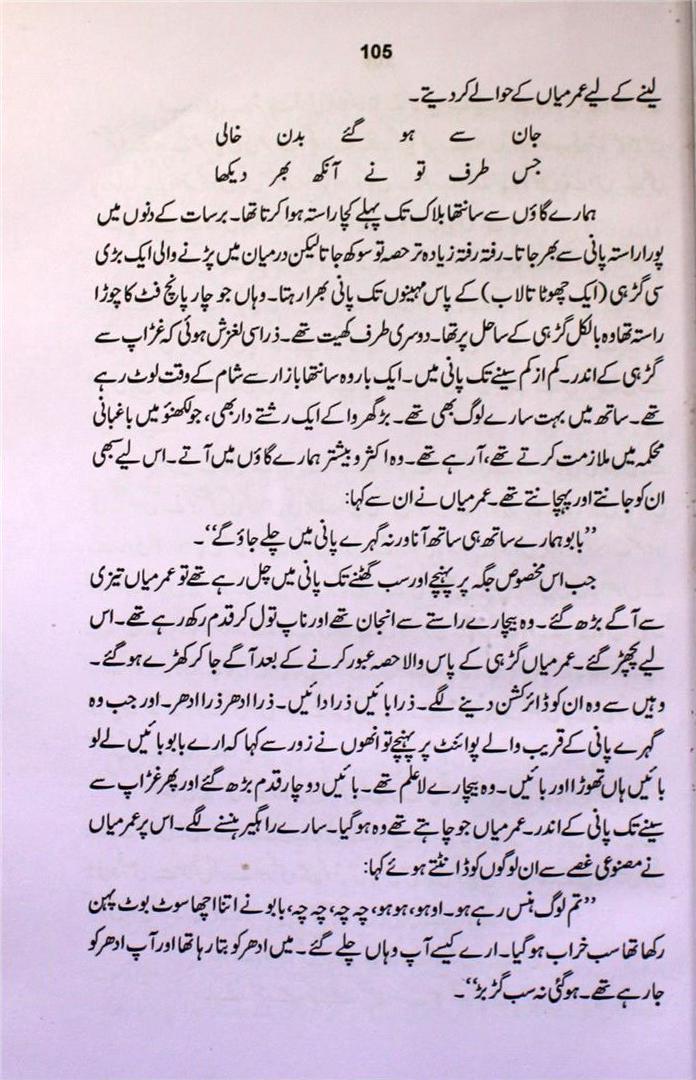 105
لینے کے لیے عمر میاں کے حوالے کر دیتے۔
جان سے ہو گئے بدن خالی
جس طرف تو نے آنکھ بھر دیکھا
ہمارے گاؤں سے سانتھا بلاک تک پہلے کچا راستہ ہوا کرتا تھا۔ برسات کے دنوں میں
پورا راستہ پانی سے بھر جاتا۔ رفتہ رفتہ زیادہ تر حصہ تو سوکھ جاتا لیکن درمیان میں پڑنے والی ایک بڑی
سی گڑہی (ایک چھوٹا تالاب) کے پاس مہینوں تک پانی بھرا رہتا۔ وہاں جو چار پانچ فٹ کا چوڑا
راستہ تھا وہ بالکل گڑہی کے ساحل پر تھا۔ دوسری طرف کھیت تھے۔ ذرا سی لغزش ہوئی کہ غڑاپ سے
گڑہی کے اندر۔ کم از کم سینے تک پانی میں۔ ایک بار وہ سانتھا بازار سے شام کے وقت لوٹ رہے
تھے۔ ساتھ میں بہت سارے لوگ بھی تھے۔ بڑگھروا کے ایک رشتے دار بھی، جو لکھنؤ میں باغبانی
محکمہ میں ملازمت کرتے تھے، آ رہے تھے۔ وہ اکثر و بیشتر ہمارے گاؤں میں آتے۔ اس لیے سبھی
ان کو جانتے اور پہچانتے تھے۔ عمر میاں نے ان سے کہا:
’’بابو ہمارے ساتھ ہی ساتھ آنا ورنہ گہرے پانی میں چلے جاؤ گے‘‘۔
جب اس مخصوص جگہ پر پہنچے اور سب گھٹنے تک پانی میں چل رہے تھے تو عمر میاں تیزی
سے آگے بڑھ گئے۔ وہ بیچارے راستے سے انجان تھے اور ناپ تول کر قدم رکھ رہے تھے۔ اس
لیے پچھڑ گئے۔ عمر میاں گڑہی کے پاس والا حصہ عبور کرنے کے بعد آگے جا کر کھڑے ہو گئے۔
وہیں سے وہ ان کو ڈائرکشن دینے لگے۔ ذرا بائیں ذرا دائیں۔ ذرا ادھر ذرا ادھر۔ اور جب وہ
گہرے پانی کے قریب والے پوائنٹ پر پہنچے تو انھوں نے زور سے کہا کہ ارے بابو بائیں لے لو
بائیں ہاں تھوڑا اور بائیں۔ وہ بیچارے لا علم تھے۔ بائیں دو چار قدم بڑھ گئے اور پھر غڑاپ سے
سینے تک پانی کے اندر۔ عمر میاں جو چاہتے تھے وہ ہو گیا۔ سارے راہگیر ہنسنے لگے۔ اس پر عمر میاں
نے مصنوعی غصے سے ان لوگوں کو ڈانٹتے ہوئے کہا:
’’تم لوگ ہنس رہے ہو۔ اوہو، ہو ہو، چہ چہ، چہ چہ، بابو نے اتنا اچھا سوٹ بوٹ پہن
رکھا تھا سب خراب ہو گیا۔ ارے کیسے آپ وہاں چلے گئے۔ میں ادھر کو بتا رہا تھا اور آپ ادھر کو
جا رہے تھے۔ ہو گئی نہ سب گڑبڑ‘‘۔